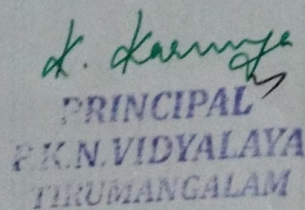 K. Karunya
PRINCIPAL
P.K.N.VIDYALAYA
TIRUMANGALAM